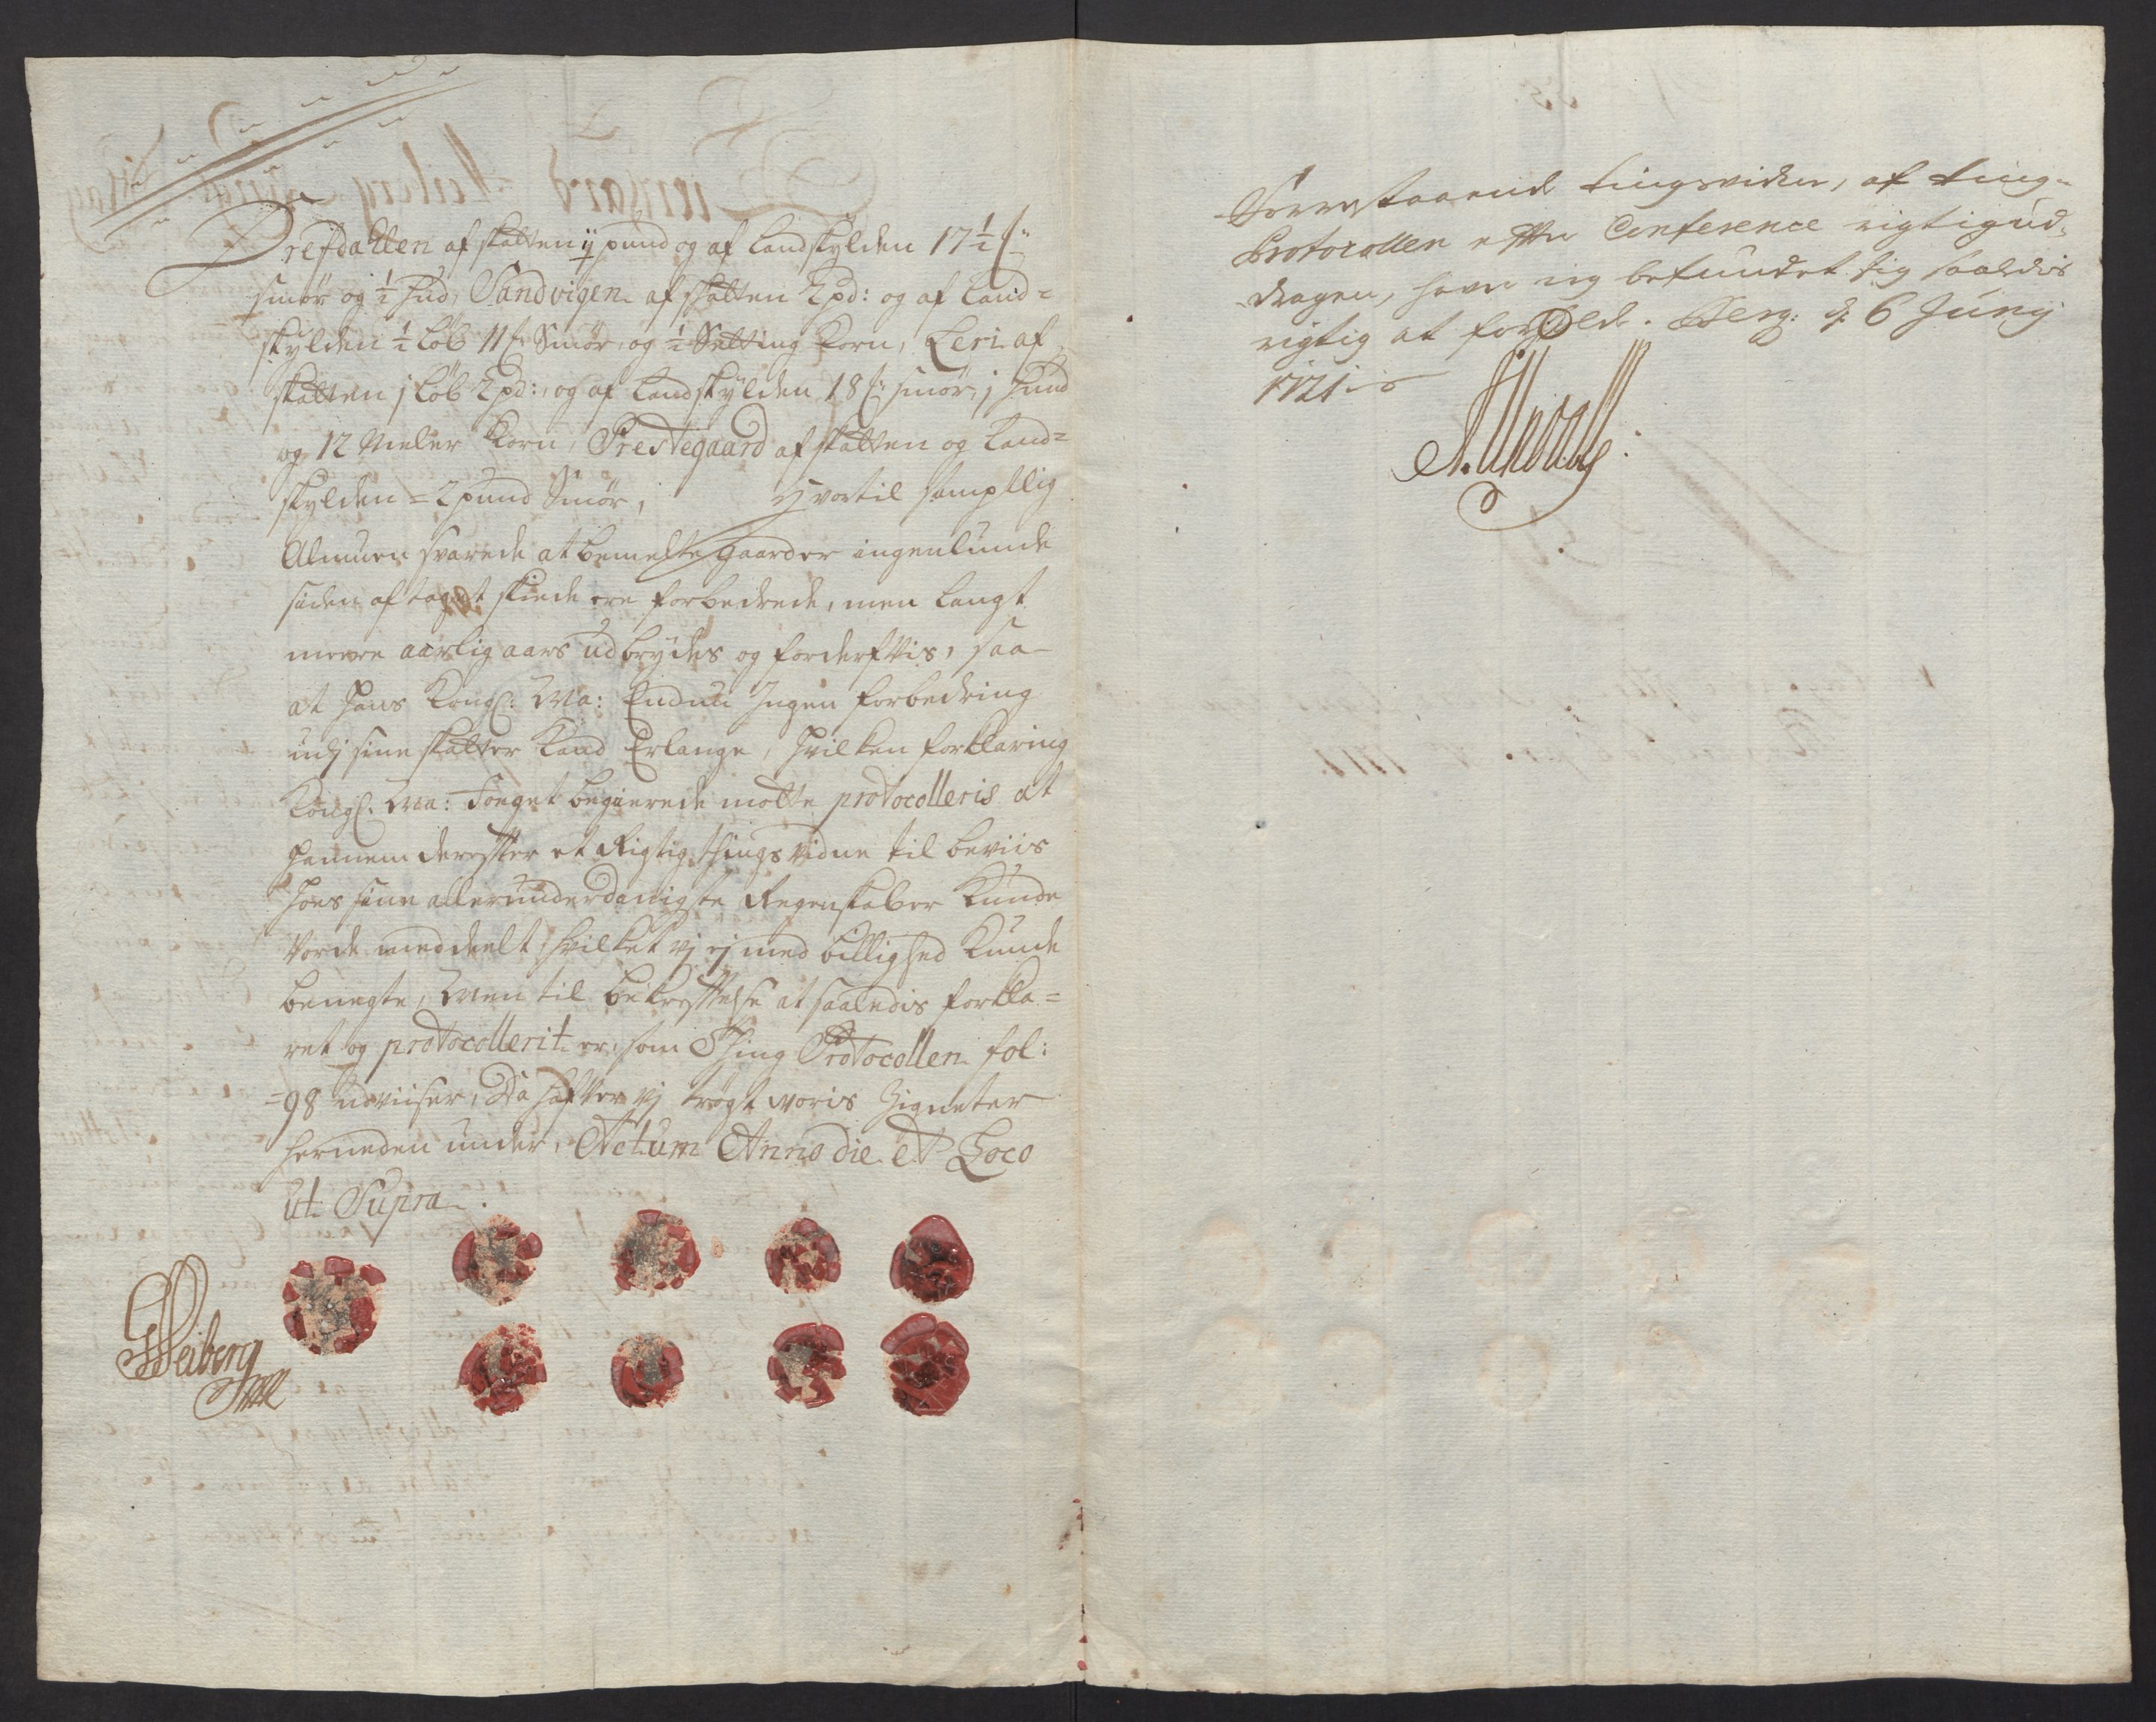 Drefdallen af skatten ij pund og af Landskylden 17½ ℔:
smør og ½ Hud, Sandvigen af skatten 2 pd: og af Land=
skylden ½ Løb 11 ℔ Smør, og ½ Setting Korn, Leri af
skatten j Løb 2 pd:, og af Landskylden 18 ℔ smør, j Hud
og 12 Meler Korn, Prestegaard af skatten og Land=
skylden = 2 pund Smør, Hvortil samptlig
Almuen svarede at bemelte gaarder ingenlunde
siden aftaget skiede ere forbedrede, men langt
meere aarlig aars udbrydes og forderfvis, saa
at Hans Kongl: Ma: Endnu Ingen forbedring
udj sine skatter Kand Erlange, Hvilken forklaring
Kongl: Ma: Foeget begierede motte protocolleris at
Hannem derefter et Rigtig things vidne til beviis
Hoes sine allerunderdanigste Regenskaber Kunde
Vorde meddeelt, Hvilket vj ej med billighed Kunde
benegte, Men til bekreftelse at saaledis forkla=
ret og protocollerit er, som Thing Protocollen fol:
=98 udviiser, Da hafver vj trøgt voris Zigneter
herneden under, Actum Anno die et Loco
ut Supra.
Heiberg
Forrestaaende tingsvidne, af ting-
Protocollen efter Conference rigtig ud-
dragen, haver ieg befundet sig saaledis
rigtig at forhold. Berg: d: 6 Junij
1721